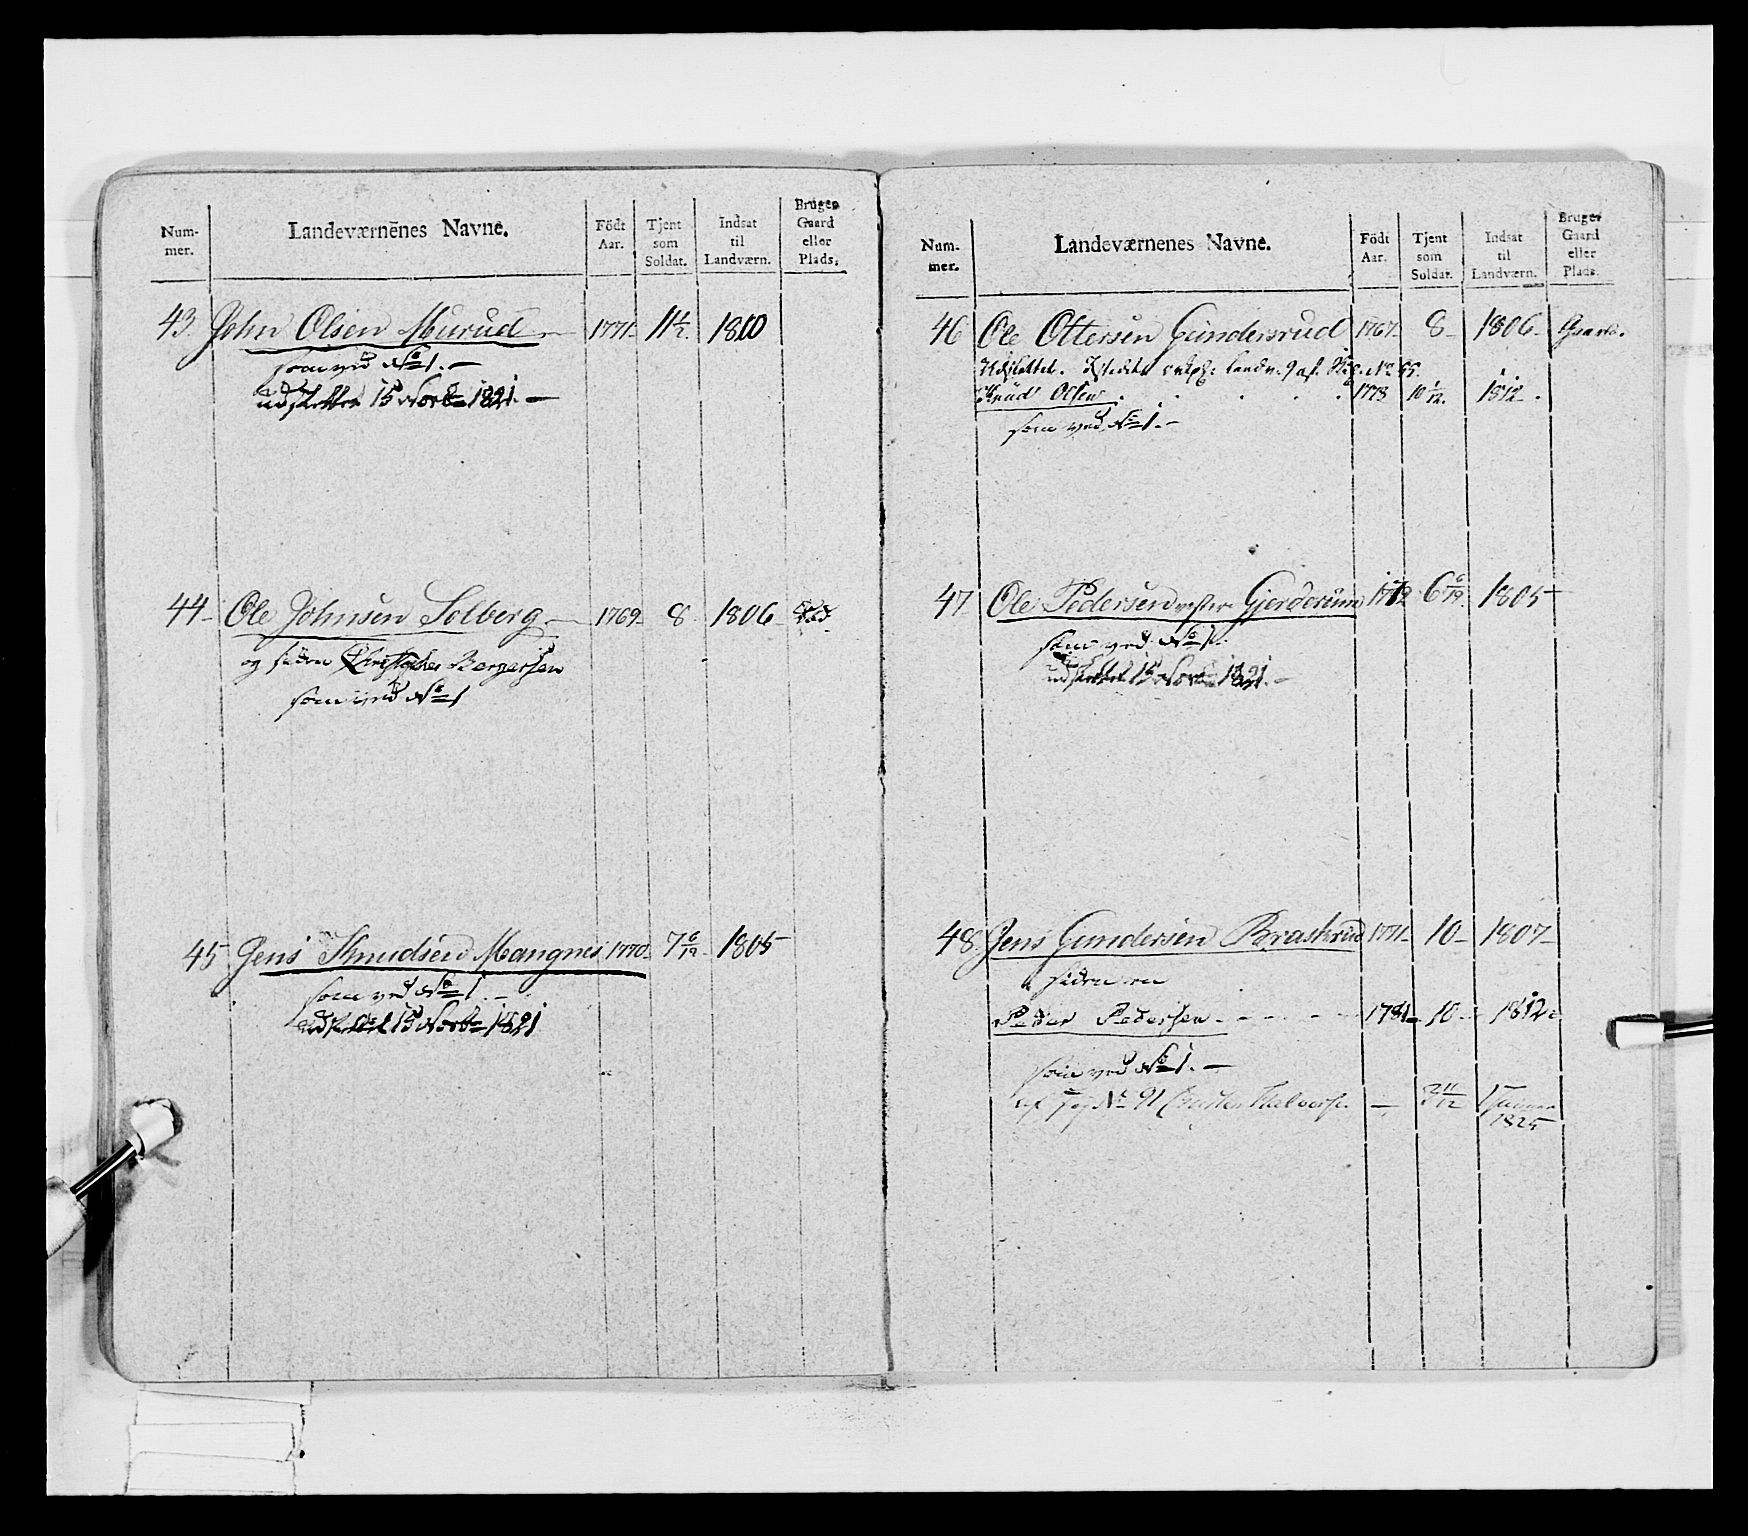 Num-
mer.
Landeværnenes Navne.
Födt
Aar.
Tjent
som
Soldat.
Indsat
til
Landværn.
Bruger
Gaard
eller
Plads.
43. John Olsen Murud 1771. 11 1/2. 1810
som ved No 1.
udslettet 15 Novbr 1821.
44 Ole Johnsen Solberg 1769 8 1806
og siden Christopher Bergersen
som ved No 1
45 Jens Knudsen Mangnes 1770 7 6/12 1805
som ved No 1.
udslettet 15 Novbr 1821
Num-
mer.
Landeværnenes Navne.
Födt
Aar.
Tjent
som
Soldat.
Indsat
til
Landværn.
Bruger
Gaard
eller
Plads.
46 Ole Ottersen Gundersrud 1767. 8 1806 Gaard.
Udslettet. Isteden Landv. af No 55.
Knud Olsen 1778 10 1/12. 1812.
som ved No 1.
47 Ole Pedersen vestre Gjerderum 1772 6 6/12. 1805
som ved No 1.
udslettet 15 Novbr 1821.
48 Jens Gundersen Braskrud 1771 10 1807
siden en
Peder Pedersen 1781 10 1812
som ved No 1.
af No 91 Halvorsen 3 11/12 1 Januar
1825